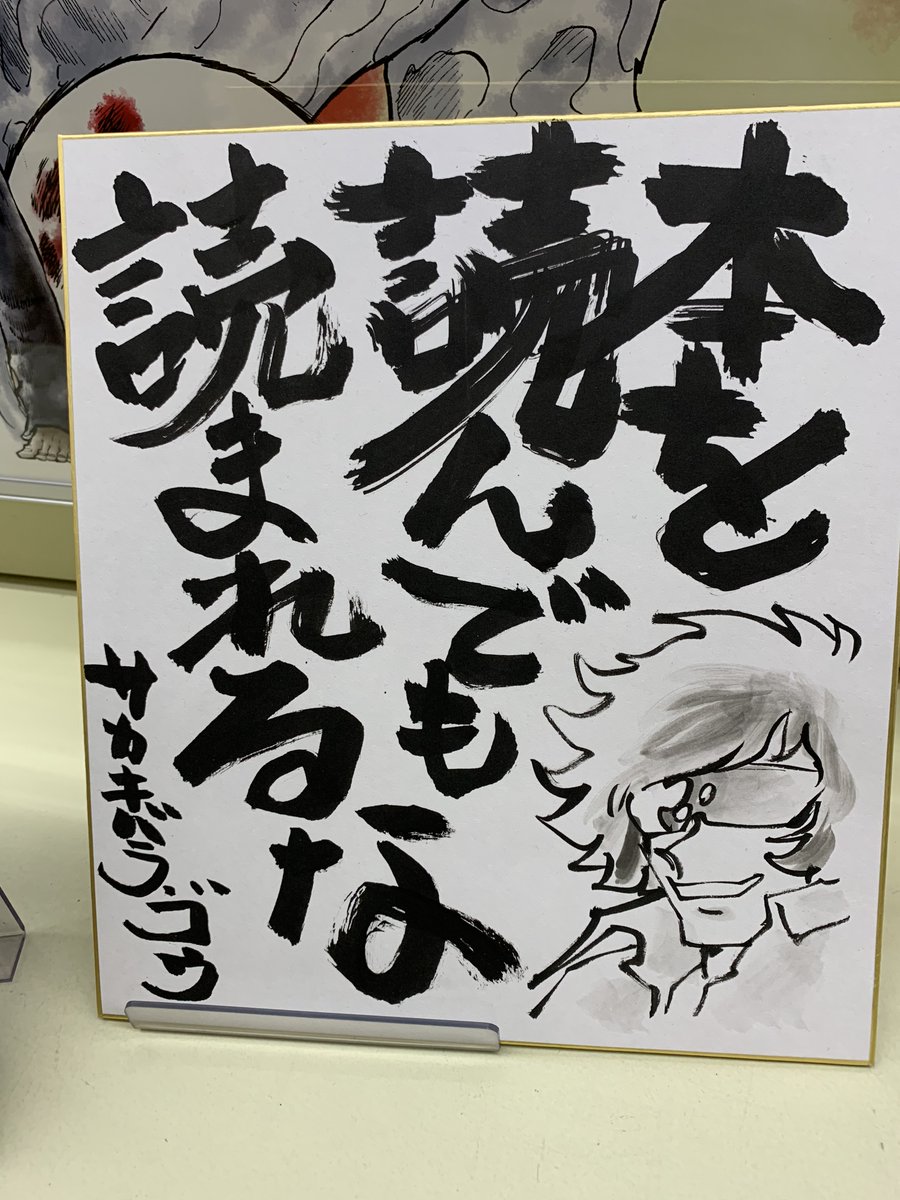 本を
読んでも
読まれるな
サカキバラゴウ